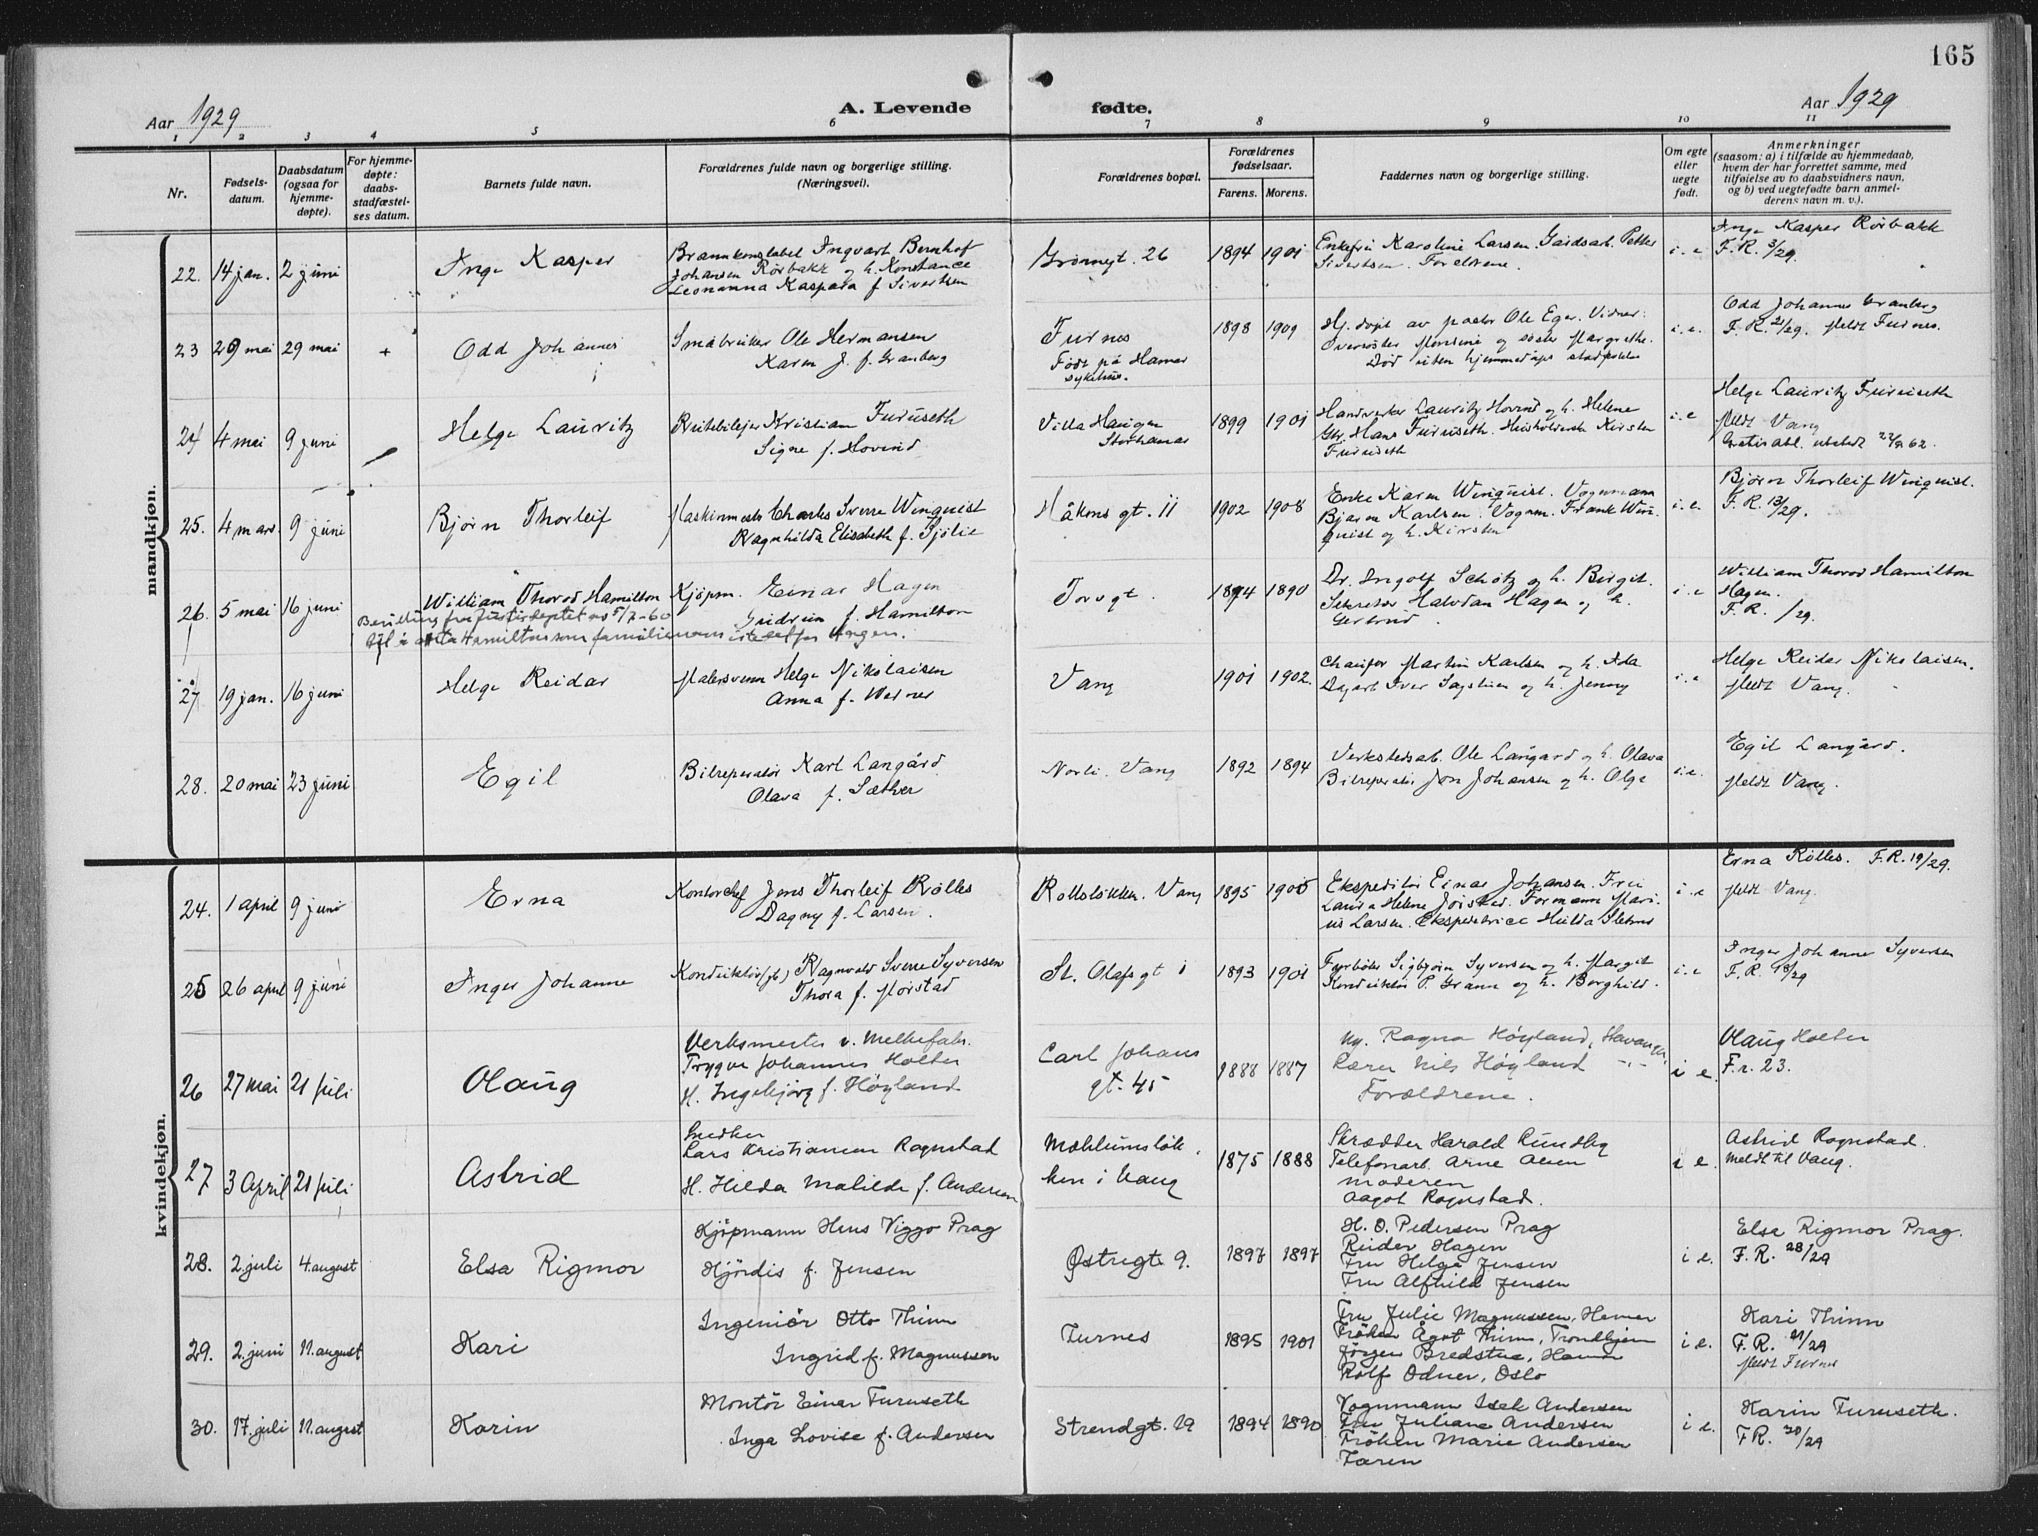 165
Aar 1929
A. Levende
fødte.
Aar 1929
1 2 3 4 5 6 7 8 9 10 11
Nr.
Fødsels-
datum.
Daabsdatum
(ogsaa for
hjemme-
døpte).
For hjemme-
døpte:
daabs-
stadfæstel-
ses datum.
Barnets fulde navn.
Forældrenes fulde navn og borgerlige stilling.
(Næringsvei).
Forældrenes bopæl.
Forældrenes
fødselsaar.
Farens. Morens.
Faddernes navn og borgerlige stilling.
Om egte
eller
uegte
født.
Anmerkninger
(saasom: a) i tilfælde av hjemmedaab,
hvem der har forrettet samme, med
tilføielse av to daabsvidners navn,
og b) ved uegtefødte barn anmel-
derens navn m. v.).
mandkjøn.
22. 14 jan. 2 juni
Inge Kasper
Brannkonstabel Ingvart Bernhof
Johansen Rørbakk og h. Konstance
Leonanna Kaspara f. Sivertsen
Grønnegt. 26
1894 1901
Enkefru Karoline Larsen. Gårdsarb. Petter
Sivertsen. Foreldrene.
i. e
Inge Kasper Rørbakk
F.R. 3/29.
23 29 mai 29 mai +
Odd Johannes
Småbruker Ole Hermansen
Karen J. f. Granberg
Furnes
Født på Hamar
sykehus.
1898 1909
Hj. døpt av pastor Ole Eger. Vidner:
Oversøster Monsine og søster Margrethe.
Død uten hjemmedåps stadfestelse
i. e.
Odd Johannes Granberg
F.R. 21/29. Meldt Furnes.
24 4 mai 9 juni
Helge Lauritz
Rutebileier Kristian Furuseth
Signe f. Hovind
Villa Haugen
Storhamar
1899 1901
Handverker Lauritz Hovind og h. Helene
Gbr. Hans Furuseth. Husholderske Kirsten
Furuseth
i. e
Helge Lauritz Furuseth
Meldt Vang
Gratis att. utstedt 22/8 62.
25. 4 mars. 9 juni
Bjørn Thorleif
Maskinmester Charles Sverre Winquist
Ragnhilda Elisabeth f. Sjölie
Håkons gt. 11
1902 1908
Enke Karen Winquist. Vognmann
Bjarne Karlsen. Vognm. Frank Win-
quist og h. Kirsten
i. e.
Bjørn Thorleif Winquist.
F.R. 13/29.
26. 5 mai 16 juni
William Thorod Hamilton
Kjøpm. Einar Hagen
Gudrun f. Hamilton
Bevilling fra Justisdeptet av 5/7-60
til å anta Hamilton som familienavn istedetfor Hagen.
Torvgt.
1894 1890
Dr. Ingolf Schötz og h. Birgit.
Sekretær Halvdan Hagen og h.
Gertrud.
i. e
William Thorod Hamilton
Hagen.
F.R. /29.
27 19 jan. 16 juni
Helge Reidar
Malersvenn Helge Nikolaisen
Anna f. Werner
Vang
1901 1902.
Chauffør Martin Karlsen og h. Ida
Dagarb. Iver Sagstuen og h. Jenny
i. e
Helge Reidar Nikolaisen.
Meldt Vang.
28. 20 mai 23 juni
Egil
Bilreperatør Karl Langård
Olava f. Sæther
Norli. Vang
1892 1894
Verkstedsarb. Ole Langard og h. Olava
Bilreperatør Jon Johansen og h. Olga
i. e.
Egil Langård.
Meldt Vang.
kvindekjøn.
24. 1 april 9 juni
Erna
Kontorchef Jens Thorleif Rølles
Dagny f. Larsen.
Rolsløkken. Vang
1895 1905
Ekspeditør Einar Johansen. Fru
Laura Helene Joistad. Formann Mari-
us Larsen. Ekspeditrice Hulda
i. e
Erna Rølles. F.R. 19/29.
Meldt Vang.
25 26 april 9 juni
Inger Johanne
Konduktör (jb) Ragnvald Sverre Syversen
Thora f. Morstad
St. Olafsgt 1
1893 1901
Fyrbøter Sigbjørn Syversen og h. Margit
Konduktør P. Grann og h. Borghild.
i. e
Inger Johanne Syversen
F.R. 18/29
26 27 mai 21 juli
Olaug
Verksmester v. Melkefabr.
Trygve Johannes Holter
H. Ingebjørg f. Høyland
Carl Johans
gt. 45
1888 1887
Ragna Høyland, Stavanger
Lærer Nils Høyland -"-
Forældrene.
i e.
Olaug Holter
F.r. 23.
27 3 April 21 juli
Astrid
Snedker
Lars Kristiansen Rognstad
H. Hilda Matilde f. Andersen
Mæhlumsløk-
ken i Vang
1875 1888
Skrædder Harald Rundby
Telefonarb. Arne Olsen
Moderen
Aagot Rognstad.
i e.
Astrid Rognstad.
Meldt til Vang.
28. 2. juli 4. august
Elsa Rigmor
Kjøpmann Hans Viggo Prag
Hjördis f. Jensen
Østregt. 9.
1897 1897
H. O. Pedersen Prag
Reidar Hagen
Fru Helga Jensen
Fru Alfhild Jensen
i e.
Elsa Rigmor Prag.
F.R. 28/29
29. 2. juni 11. august
Kari
Ingeniör Otto Thinn
Ingrid f. Magnussen
Furnes
1895 1901
Fru Julie Magnussen, Hamar
Frøken Ågot Thinn, Trondhjem
Jørgen Bredstue, Hamar
Rolf Odner, Oslo
i e.
Kari Thinn
F.R. 21/29
Meldt Furnes
30. 17. juli 11. august
Karin
Montör Einar Furuseth
Inga Lovise f. Andersen
Strandgt. 19
1894 1890
Vognmann Isak Andersen
Fru Juliane Andersen
Frøken Marie Andersen
Faren
i e.
Karin Furuseth.
F.R. 20/29